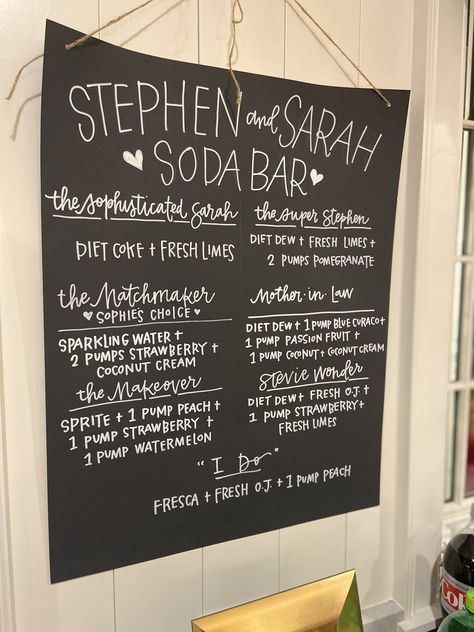 STEPHEN and SARAH
SODA BAR
the sophisticated Sarah
DIET COKE + FRESH LIMES
the super Stephen
DIET DEW + FRESH LIMES +
2 PUMPS POMEGRANATE
the Matchmaker
SOPHIES CHOICE
SPARKLING WATER +
2 PUMPS STRAWBERRY +
COCONUT CREAM
Mother-in-Law
DIET DEW + 1 PUMP BLUE CURACO +
1 PUMP PASSION FRUIT +
1 PUMP COCONUT + COCONUT CREAM
the Makeover
SPRITE + 1 PUMP PEACH +
1 PUMP STRAWBERRY +
1 PUMP WATERMELON
Stevie Wonder
DIET DEW + FRESH O.J. +
1 PUMP STRAWBERRY +
FRESH LIMES
"I Do"
FRESCA + FRESH O.J. + 1 PUMP PEACH